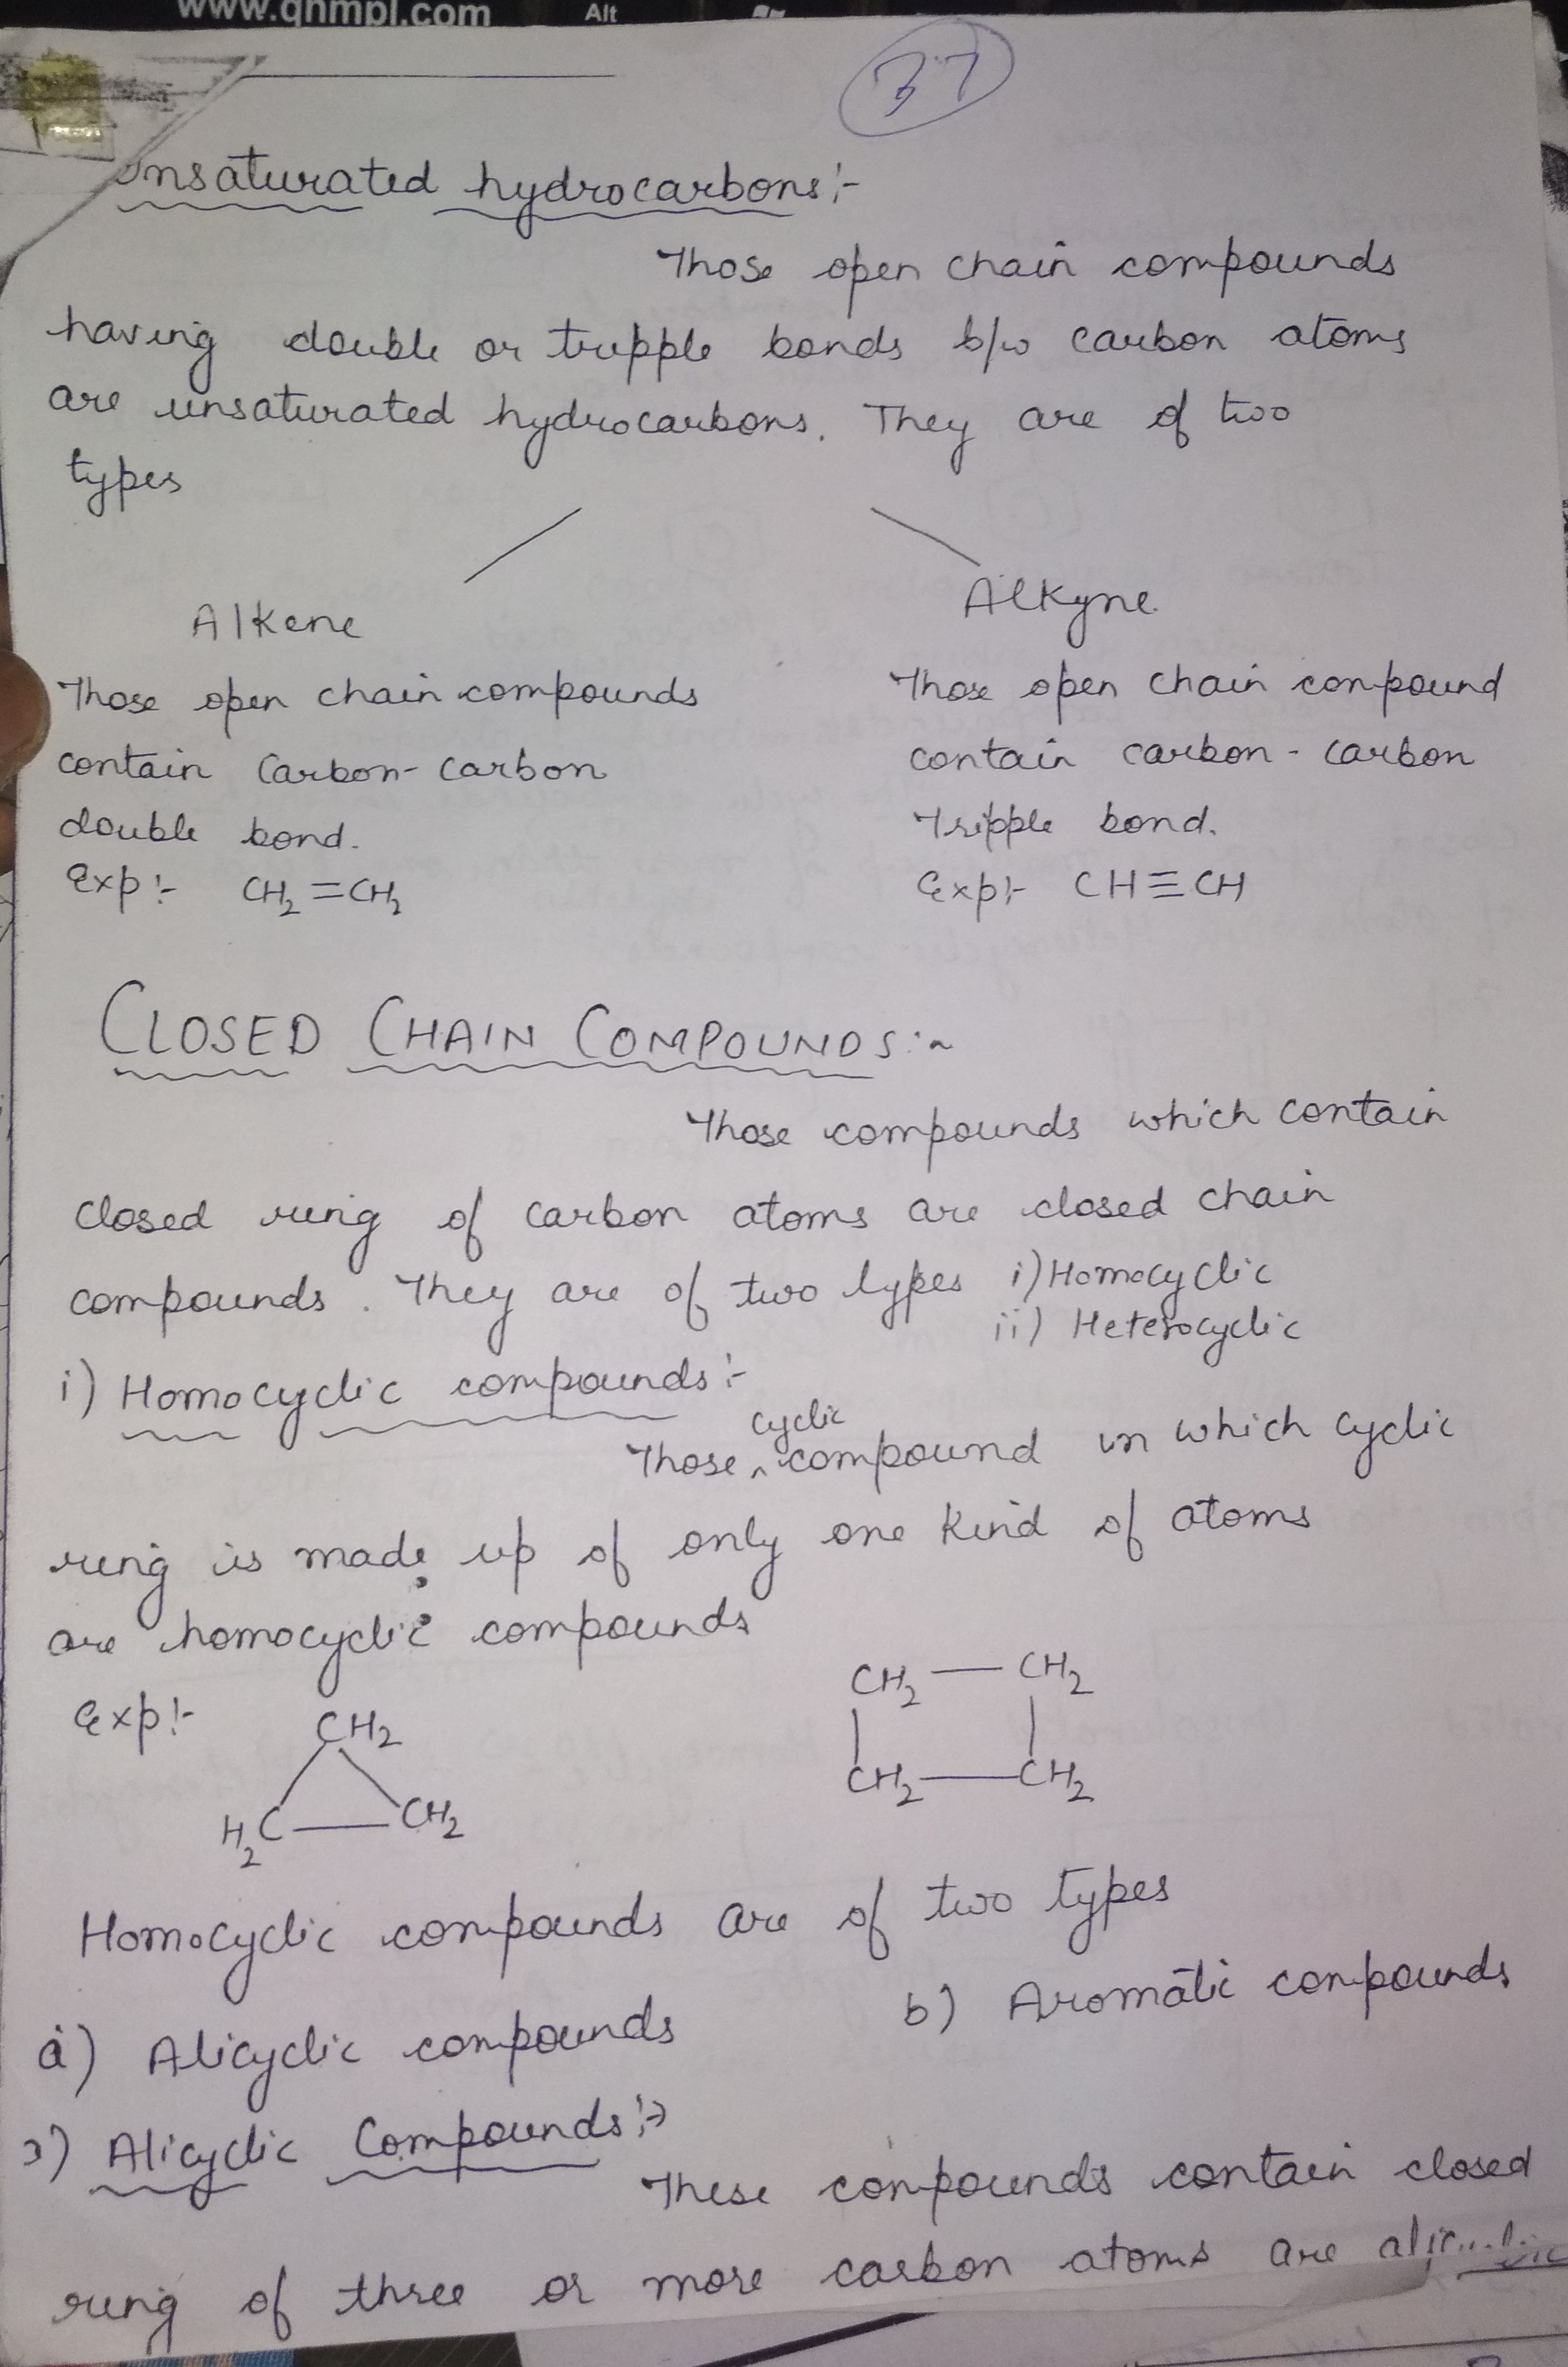 www.qhmpl.com
Alt
37
Unsaturated hydrocarbons:-
Those open chain compounds
having double or tripple bonds b/w carbon atoms
are unsaturated hydrocarbons. They are of two
types
Alkene
Those open chain compounds
contain carbon-carbon
double bond.
Exp:- CH₂=CH₂
Alkyne.
Those open chain compound
contain carbon-carbon
Tripple bond.
Exp:- CH≡CH
CLOSED CHAIN COMPOUNDS:-
Those compounds which contain
closed ring of carbon atoms are closed chain
compounds. They are of two types i) Homocyclic
ii) Heterocyclic
i) Homocyclic compounds:-
Those cyclic compound in which cyclic
ring is made up of only one kind of atoms
are homocyclic compounds
Exp:-
CH₂
H₂C — CH₂
CH₂ — CH₂
CH₂ — CH₂
Homocyclic compounds are of two types
a) Alicyclic compounds
b) Aromatic compounds
a) Alicyclic Compounds:→
These compounds contain closed
ring of three or more carbon atoms are